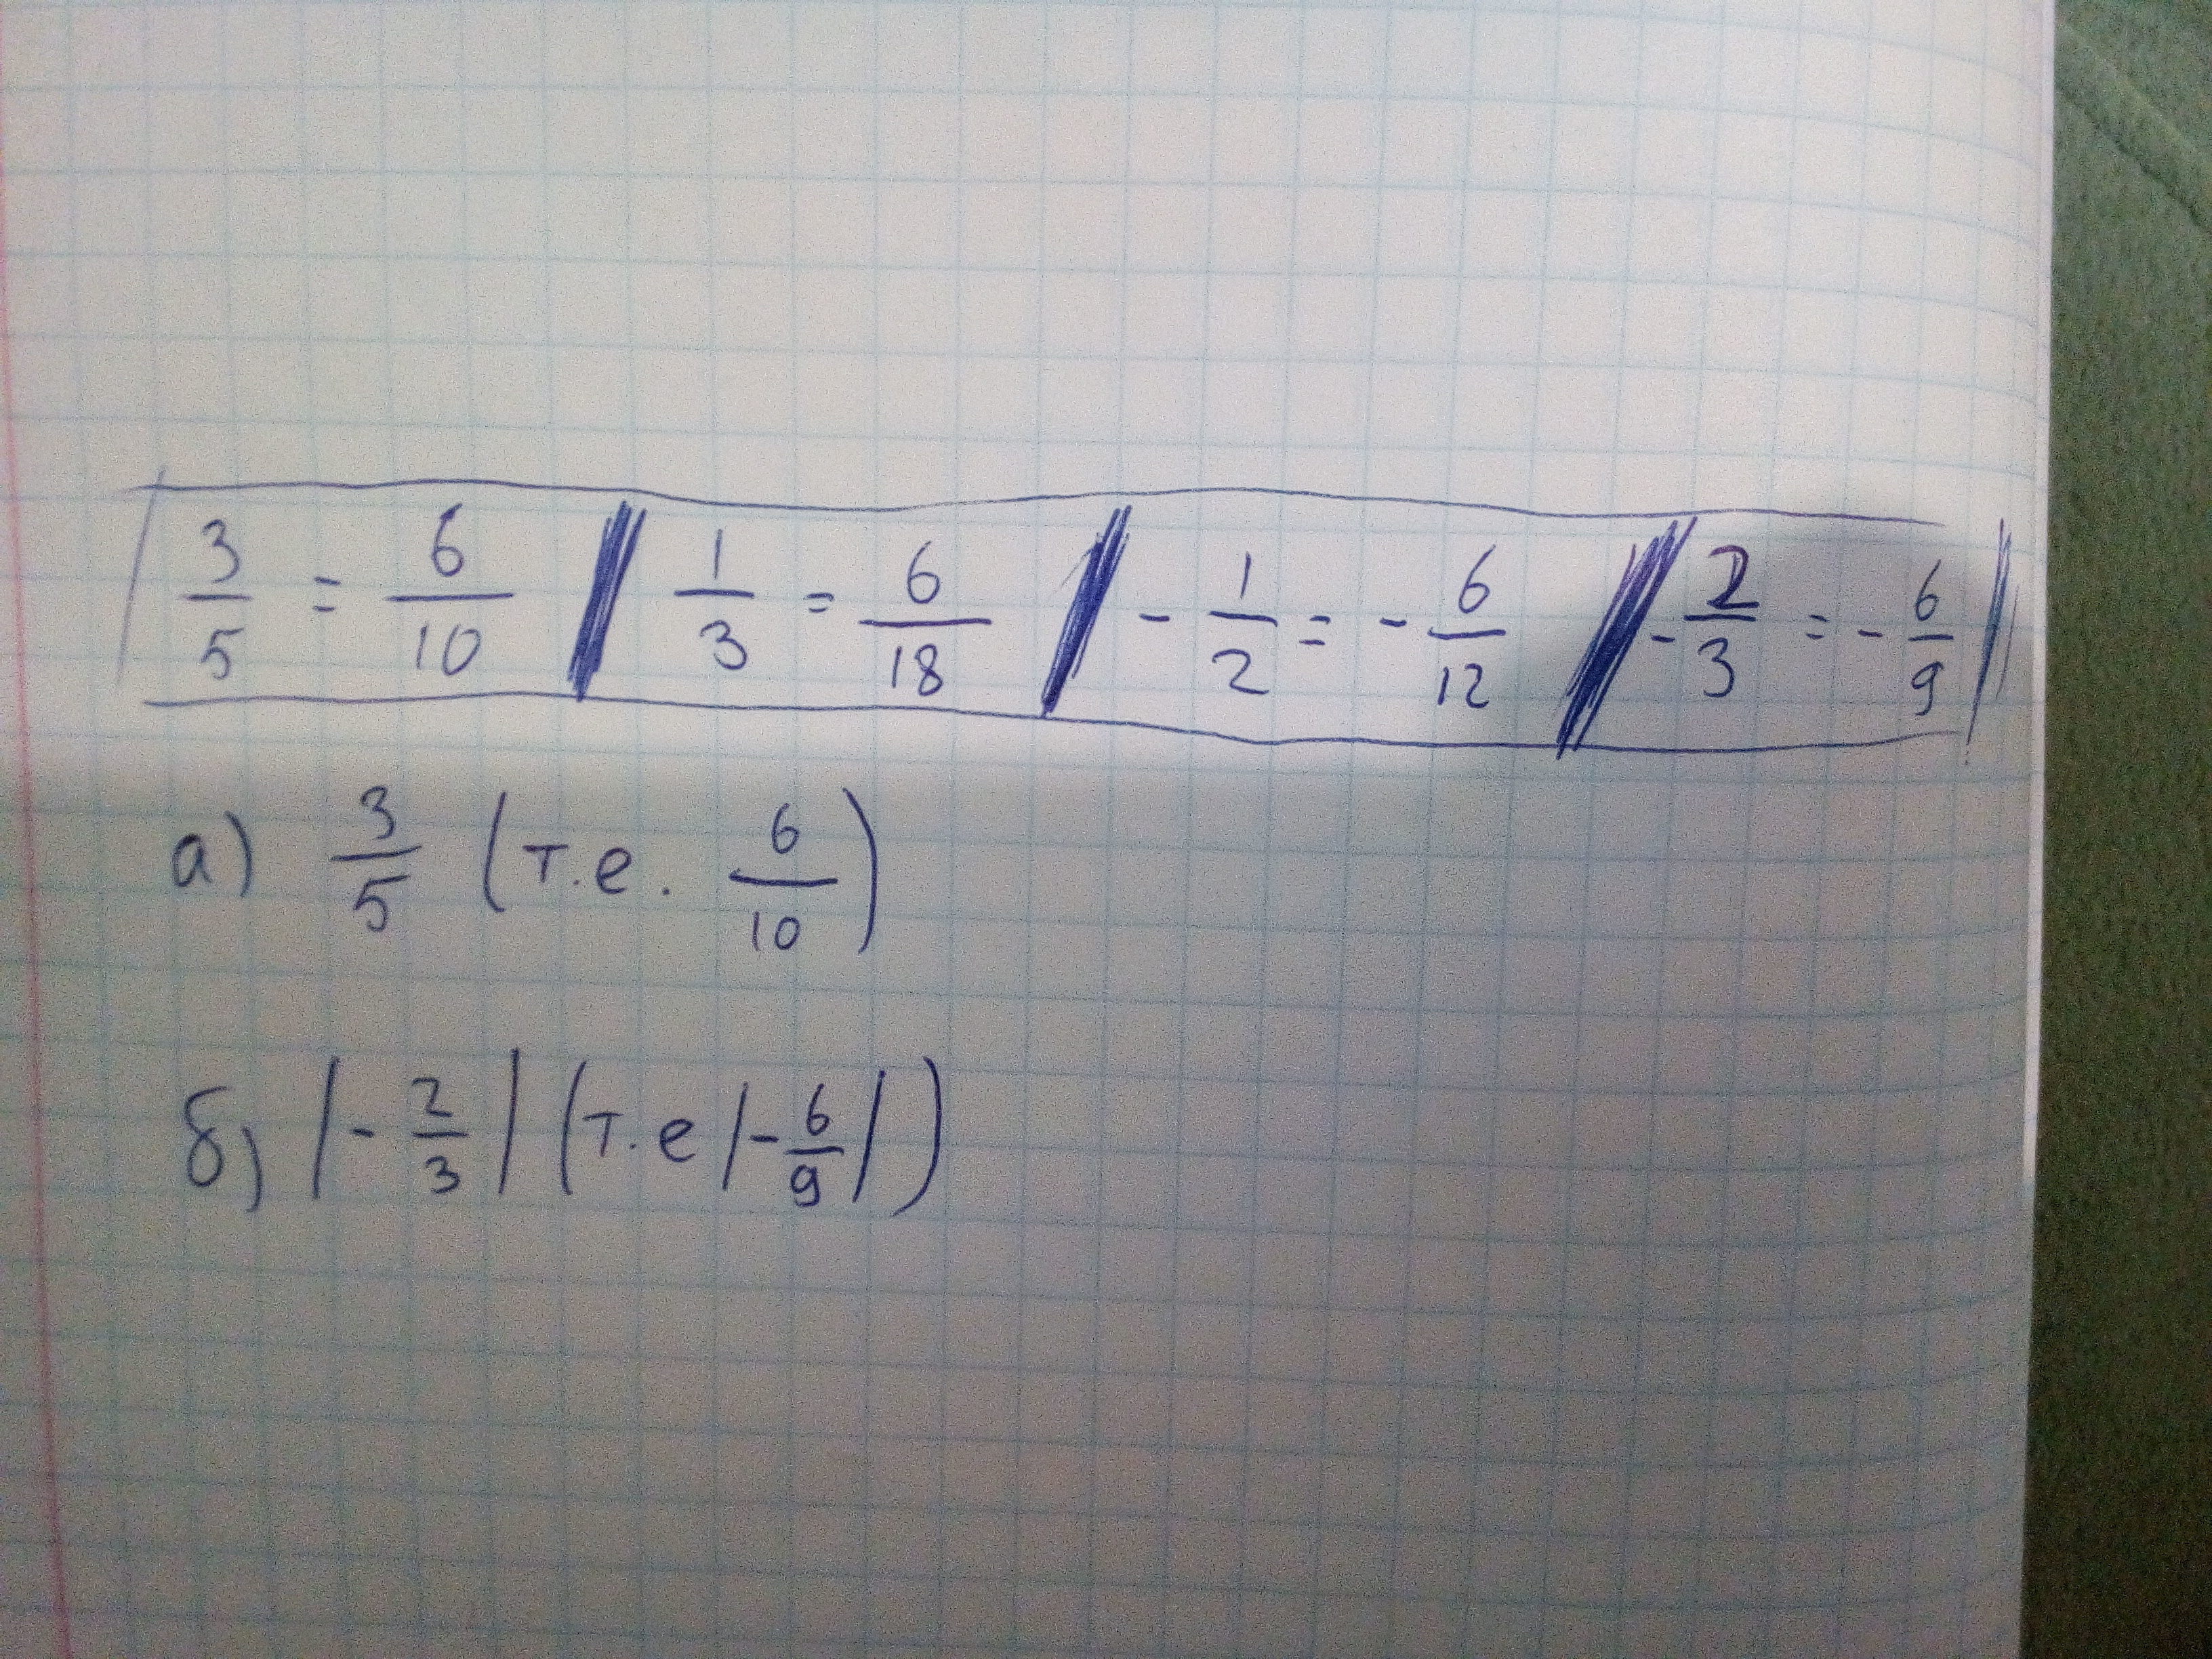 3/5 = 6/10 | 1/3 = 6/18 | - 1/2 = - 6/12 | - 2/3 = - 6/9
а) 3/5 (т.е. 6/10)
б) |- 2/3| (т.е |- 6/9|)